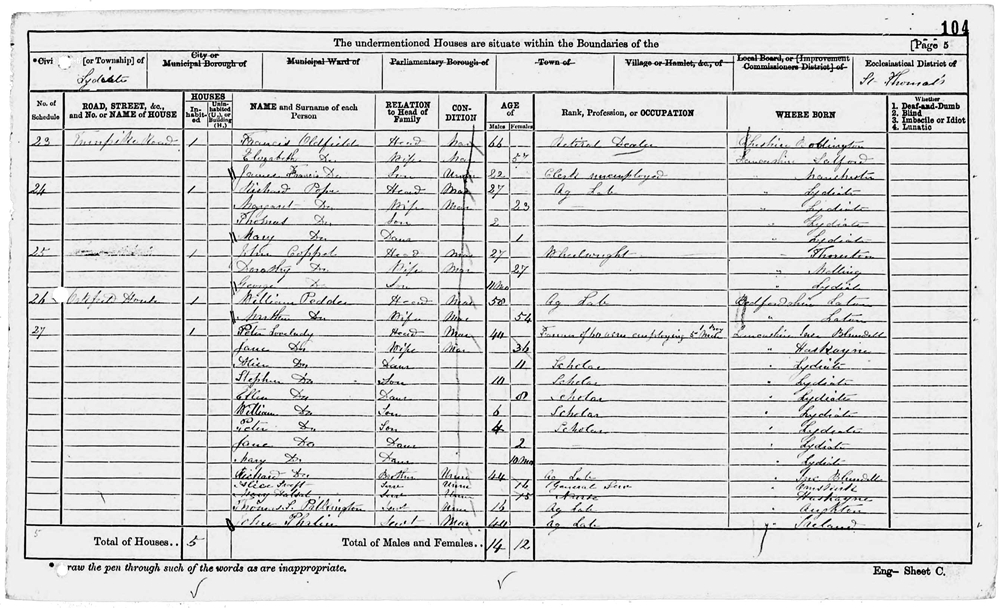 104
The undermentioned Houses are situate within the Boundaries of the [Page 5
*Civi [or Township] of City or Municipal Borough of Municipal Ward of Parliamentary Borough of Town of Village or Hamlet, &c., of Local Board, or [Improvement Commissioners District] of Ecclesiastical District of
Lydiate St Thomas's
No. of Schedule ROAD, STREET, &c., and No. or NAME of HOUSE HOUSES In-habit-ed Unin-habited (U.), or Building (B.) NAME and Surname of each Person RELATION to Head of Family CON-DITION AGE of Males Females Rank, Profession, or OCCUPATION WHERE BORN Whether 1. Deaf-and-Dumb 2. Blind 3. Imbecile or Idiot 4. Lunatic
23 Road 1 Francis Oldfield Head Mar 66 Retired Dealer Cheshire
Elizabeth Do Wife Mar 57 Lancashire Salford
James Francis Do Son Unm 22 Clerk unemployed " Manchester
24 1 Richard Pope Head Mar 27 Ag Lab " Lydiate
Margaret Do Wife Mar 23 " Lydiate
Thomas Do Son 2 " Lydiate
Mary Do Daur 1 " Lydiate
25 1 John Coppel Head Mar 27 Wheelwright " Thornton
Dorothy Do Wife Mar 27 " Melling
George Do Son Mo " Lydiate
26 House 1 William Pedder Head Mar 58 Ag Lab Bedfordshire Luton
Do Wife Mar 54 " Luton
27 1 Peter Head Mar 44 Farmer of acres employing Lancashire Ince Blundell
Jane Do Wife Mar 36 " Haskayne
Do Daur 11 Scholar " Lydiate
Stephen Do Son 10 Scholar " Lydiate
Ellen Do Daur 8 Scholar " Lydiate
William Do Son 6 Scholar " Lydiate
Peter Do Son 4 Scholar " Lydiate
Jane Do Daur 2 " Lydiate
Mary Do Daur 10 Mo " Lydiate
Richard Do Brother Unm 44 Ag Lab " Ince Blundell
Alice Swift Serv Unm 16 General Serv " Ormskirk
Mary Serv Unm 15 Nurse " Haskayne
Thomas Pilkington Servt Unm 16 Ag Lab " Aughton
John Servt Mar 44 Ag Lab " Ireland
5
Total of Houses.. 5 Total of Males and Females.. 14 12
* raw the pen through such of the words as are inappropriate. Eng– Sheet C.